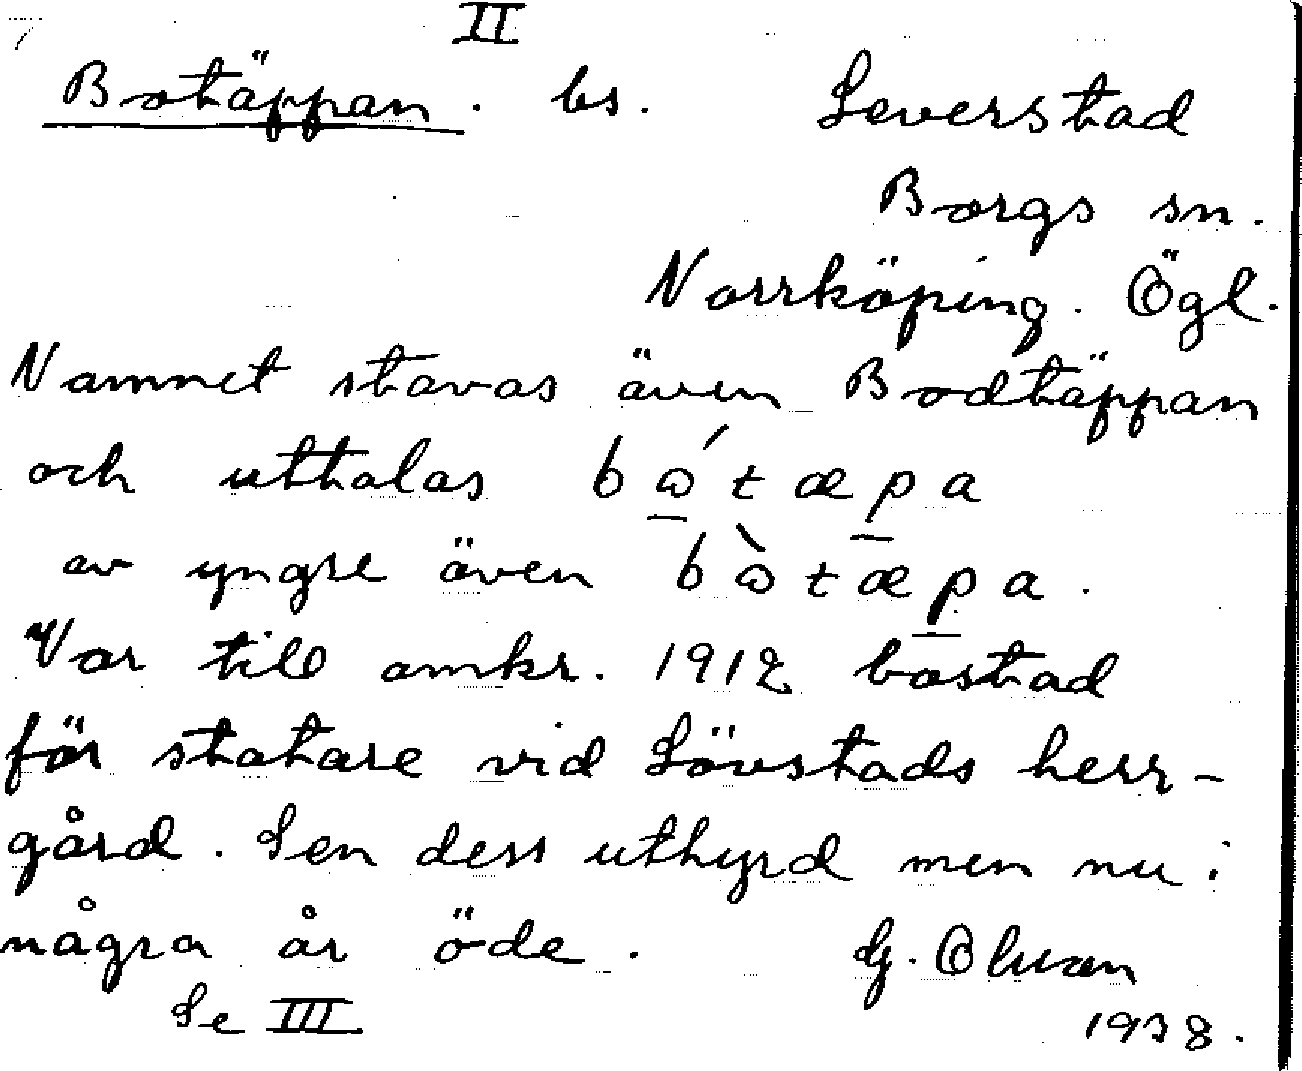 II
Botäppan. bs. Leverstad
Borgs sn.
Norrköping. Ögl.
Namnet stavas även Bodtäppan
och uttalas bɷ́tæpa
av yngre även bɷ̀tæpa.
Var till omkr. 1912 bostad
för statare vid Lövstads herr-
gård. Sen dess uthyrd men nu i
några år öde. G. Olsson
Se III 1938.